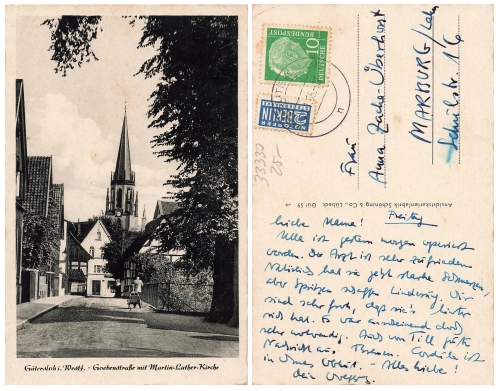 Gütersloh i. Westf. - Goebenstraße mit Martin-Luther-Kirche
DEUTSCHE BUNDESPOST
10
NOTOPFER
2 BERLIN
STEUERMARKE
Frau
Anna Zache-Überhorst
MARBURG/Lahn
Schulstr. 16
33330
25-
Ansichtskartenfabrik Schöning & Co., Lübeck Gül 59
Freitag
Liebe Mama!
Ulla ist gestern morgen operiert
worden. Der Arzt ist sehr zufrieden
Natürlich hat sie jetzt starke Schmerzen,
aber Spritzen schaffen Linderung. Wir
sind sehr froh, daß sie's hinter
sich hat. Es war anscheinend doch
sehr notwendig. Auch von Till gute
Nachricht aus Bremen. Cordula ist
in - Alles Liebe!
dein